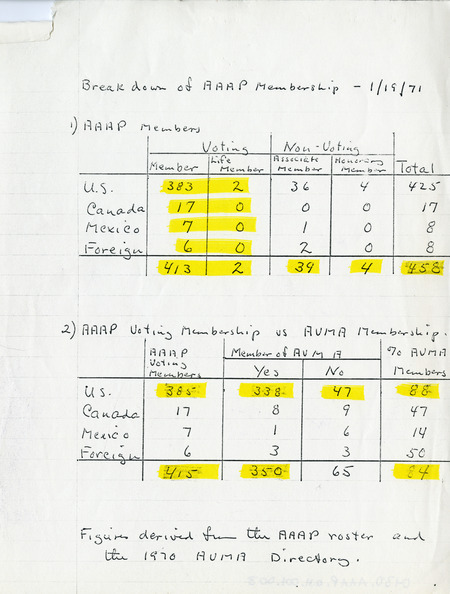 Breakdown of AAAP Membership - 1/19/71
1) AAAP Members
Voting Non-Voting
Member Life Member Associate Member Honorary Member Total
U.S. 383 2 36 4 425
Canada 17 0 0 0 17
Mexico 7 0 1 0 8
Foreign 6 0 2 0 8
413 2 39 4 458
2) AAAP Voting Membership vs AVMA Membership.
AAAP Voting Members Member of AVMA % AVMA Members
Yes No
U.S. 385 338 47 88
Canada 17 8 9 47
Mexico 7 1 6 14
Foreign 6 3 3 50
415 350 65 84
Figures derived from the AAAP roster and
the 1970 AVMA Directory.